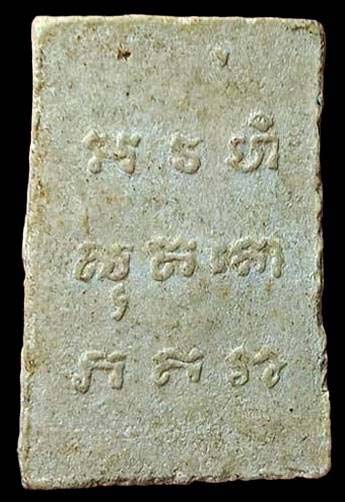 អ រ ហំ
សុ គ តោ
ភ គ វា